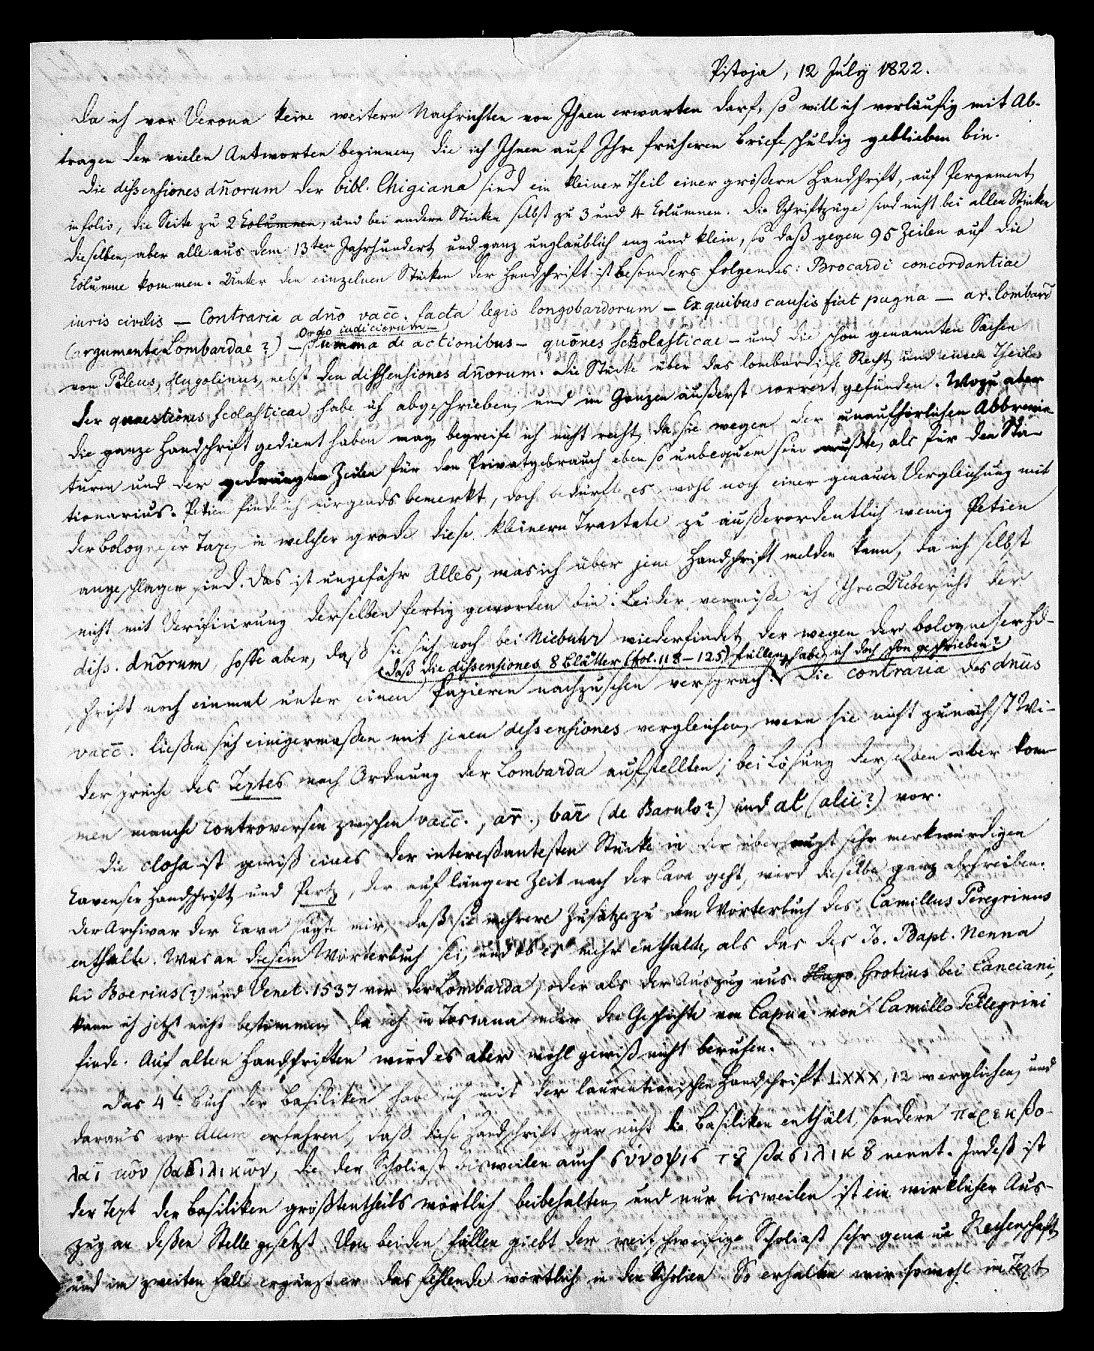 Pistoja, 12 July 1822.
Da ich vor Verona keine weitern Nachrichten von Ihnen erwarten darf, so will ich vorläufig mit Ab-
tragen der vielen Antworten beginnen, die ich Ihnen auf Ihre früheren Briefe schuldig geblieben bin.
Die dissensiones dn̄orum der bibl. Chigiana sind ein kleiner Theil einer größern Handschrift, auf Pergament,
in folio, die Seite zu 2 Kolumnen, und bei andern Stücken selbst zu 3 und 4 Kolumnen. Die Schriftzüge sind nicht bei allen Stücken
dieselben, aber alle aus dem 13ten Jahrhundert und ganz unglaublich eng und klein, so daß gegen 95 Zeilen auf die
Kolumne kommen. Unter den einzelnen Stücken der Handschrift ist besonders folgendes: Brocardi concordantiae
iuris civilis — Contraria a dno vacc̄. facta legis longobardorum — Ex quibus causis fiat pugna — ar. lombard̄
Ordo iudiciorum —
(argumenta Lombardae?) — Summa de actionibus — quo̅nes scholasticae — und die schon genannten Sachen
von Pileus, Hugolinus, nebst den dissensiones dn̄orum. Die Stücke über das lombardische Recht und einen Theil
der quaestiones scolasticae habe ich abgeschrieben, und im Ganzen äußerst correct gefunden. Wozu aber
die ganze Handschrift gedient haben mag, begreife ich nicht recht, da sie wegen der unaufhörlichen Abbrevia
turen und der gedrängten Zeilen für den Privatgebrauch eben so unbequem sein mußte, als für den Sta-
tionarius. Petien finde ich nirgends bemerkt, doch bedürfte es wohl noch einer genauen Vergleichung mit
der Bologneser Taxe, in welcher grade diese kleinern Tractate zu außerordentlich wenig Petien
angeschlagen sind. Das ist ungefähr Alles, was ich über jene Handschrift melden kann, da ich selbst
nicht mit Verificirung derselben fertig geworden bin. Leider vermisse ich Ihre Uebersicht der
diss. dn̄orum, hoffe aber, daß sie sich noch bei Niebuhr wiederfindet, der wegen der bologneser Hd-
(daß die dissensiones 8 Blätter (fol. 118–125) füllen, habe ich doch schon geschrieben?)
schrift noch einmal unter seinen Papieren nachzusehen versprach. Die contraria des dn̄us
vacc̄. ließen sich einigermaßen mit jenen dissensiones vergleichen, wenn sie nicht zunächst Wi-
dersprüche des Textes nach Ordnung der Lombarda aufstellten; bei Lösung derselben aber kom-
men manche Controversen zwischen vacc̄., ar̄., bar̄ (de Barulo?) und al (alii?) vor.
Die Glosa ist gewiß eines der interessantesten Stücke in der überhaupt sehr merkwürdigen
Cavenser Handschrift und Pertz, der auf längere Zeit nach der Cava geht, wird dieselbe ganz abschreiben.
Der Archivar der Cava sagte mir, daß sie mehrere Zusätze zu dem Wörterbuch des Camillus Peregrinus
enthalte. Was an diesem Wörterbuch sei, und ob es mehr enthalte, als das des Jo. Bapt. Nenna
bei Boerius(?) und Venet. 1537 vor der Lombarda, oder als der Auszug aus Hugo Grotius bei Canciani,
kann ich jetzt nicht bestimmen, da ich in Toscana nur die Geschichte von Capua von Camillo Pellegrini
finde. Auf alten Handschriften wird es aber wohl gewiß nicht beruhen.
Das 4te Buch der Basiliken habe ich mit der laurentianischen Handschrift LXXX, 12 verglichen, und
daraus vor Allem erfahren, daß diese Handschrift gar nicht die Basiliken enthält, sondern παρεκβο-
λαὶ τῶν βασιλικῶν, die der Scholiast bisweilen auch σύνοψις τȣ βασιλικȣ nennt. Indeß ist
der Text der Basiliken größtentheils wörtlich beibehalten, und nur bisweilen ist ein wirklicher Aus-
zug an deßen Stelle gesetzt. Von beiden Fällen giebt der weitschweifige Scholiast sehr genaue Rechenschaft,
und im zweiten Fall ergänzt er das fehlende wörtlich in den Scholien. So erhalten wir sowohl im Text